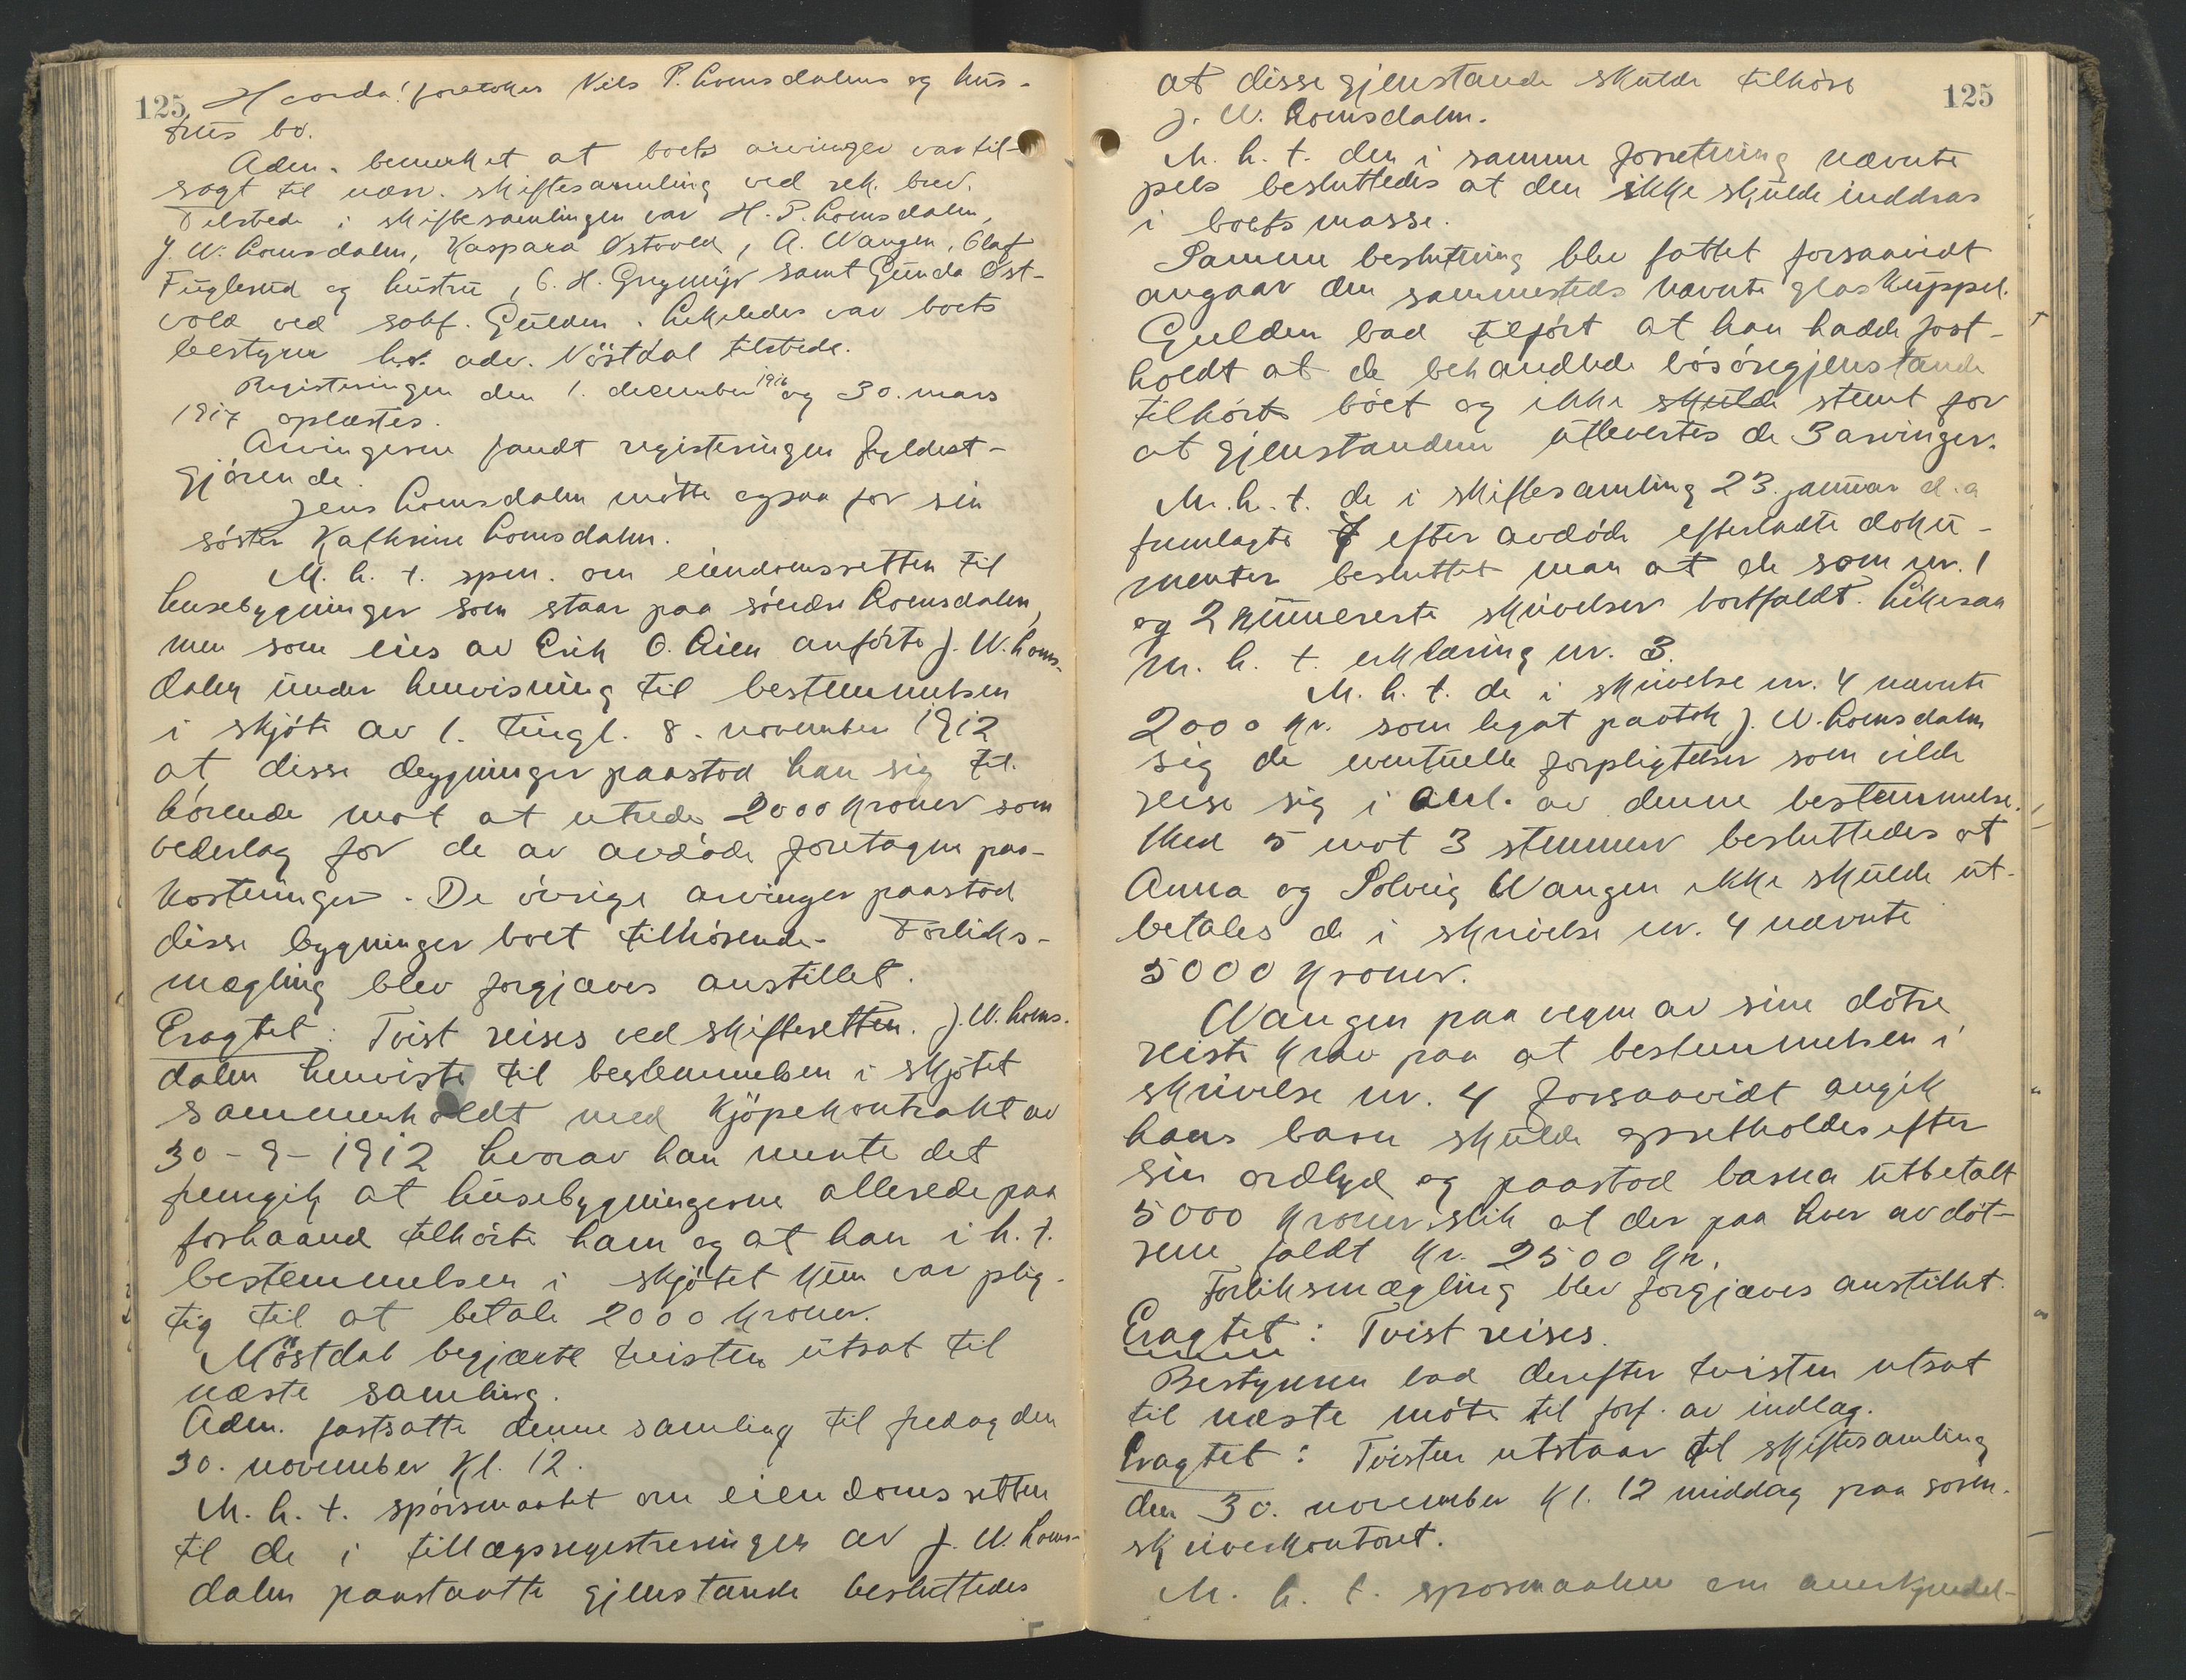 125
H corda! foretokes Nils P. Lomsdalens og hus-
trus bo.
Adm. bemerket at boets arvinger var til-
sagt til nærv. skiftesamling ved rek. brev.
Tilstede i skiftesamlingen var H. P. Lomsdalen,
J. W. Lomsdalen, Kaspara Østvold, A. Wangen, Olaf
Fuglerud og hustru, C. H. Grymyr samt Gunda Øst-
vold ved sakf. Gulden. Likeledes var boets
bestyrer h.r. adv. Nöstdal tilstede.
Registeringen den 1. december 1916 og 30. mars
1917 oplæstes.
Arvingerne fandt registeringen fyldest-
gjörende.
Jens Lomsdalen mötte ogsaa for sin
söster Kathrine Lomsdalen.
M. h. t. spm. om eiendomsretten til
husebygninger som staar paa söndre Lomsdalen,
men som eies av Erik O. Lien anförte J. W. Loms-
dalen under henvisning til bestemmelsen
i skjöte av 1. tingl. 8. november 1912
at disse bygninger paastod han sig til-
hörende mot at utrede 2000 kroner som
vederlag for de av avdöde foretagne paa-
kostninger. De övrige arvinger paastod
disse bygninger boet tilhörende. Forliks-
mægling blev forgjæves anstillet.
Eragtet: Tvist reises ved skifteretten. J. W. Loms-
dalen henviste til bestemmelsen i skjötet
sammenholdt med kjöpekontrakt av
30-9-1912 hvorav han mente det
fremgik at husebygningerne allerede paa
forhaand tilhörte ham og at han i h. t.
bestemmelsen i skjötet kun var plig-
tig til at betale 2000 kroner.
Nöstdal begjærte tvisten utsat til
næste samling.
Adm. fastsatte denne samling til fredag den
30. november kl. 12.
M. h. t. spörsmaalet om eiendomsretten
til de i tillægsregistreringen av J. W. Loms-
dalen paastaatte gjenstande besluttedes
125
at disse gjenstande skulde tilhöre
J. W. Lomsdalen.
M. h. t. den i samme forretning nævnte
pels besluttedes at den ikke skulde inddras
i boets masse.
Samme beslutning blev fattet forsaavidt
angaar den sammesteds nævnte glaskuppel.
Gulden bad tilfört at han hadde fast-
holdt at de behandlede lösöregjenstande
tilhörte boet og ikke skulde stemt for
at gjenstandene utlevertes de 3 arvinger.
M. h. t. de i skiftesamling 23. januar d. a
fremlagte 7 efter avdöde efterladte doku-
menter besluttet man at de som nr. 1
og 2 numererte skrivelser bortfaldt. Likesaa
m. h. t. erklæring nr. 3.
M. h. t. de i skrivelse nr. 4 nævnte
2000 kr. som legat paatok J. W. Lomsdalen
sig de eventuelle forpligtelser som vilde
reise sig i anl. av denne bestemmelse.
Med 5 mot 3 stemmer besluttedes at
Anna og Solveig Wangen ikke skulde ut-
betales de i skrivelse nr. 4 nævnte
5000 kroner.
Wangen paa vegne av sine dötre
reiste krav paa at bestemmelsen i
skrivelse nr. 4 forsaavidt angik
hans barn skulde opretholdes efter
sin ordlyd og paastod barna utbetalt
5000 kroner, slik at der paa hver av döt-
rene faldt kr. 2500 kr.
Forliksmægling blev forgjæves anstillet.
Eragtet: Tvist reises.
Bestyreren bad derefter tvisten utsat
til næste möte til forf. av indlæg.
Eragtet: Tvisten utstaar til skiftesamling
den 30. november kl. 12 middag paa soren-
skriverkontoret.
M. h. t. sporsmaalene om anerkjendel-